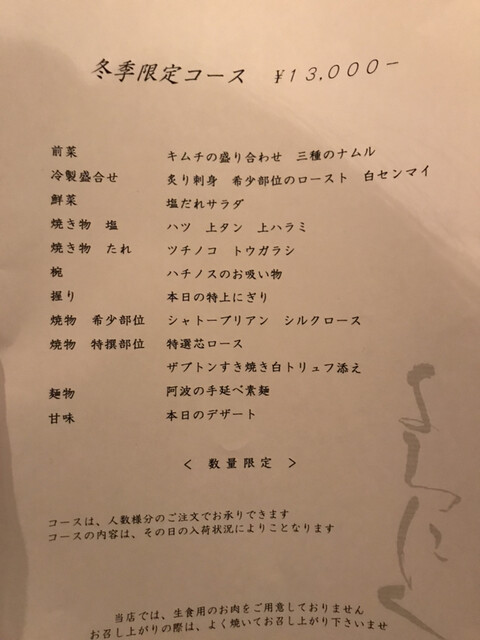 冬季限定コース ¥13,000-
前菜 キムチの盛り合わせ 三種のナムル
冷製盛合せ 炙り刺身 希少部位のロースト 白センマイ
鮮菜 塩だれサラダ
焼き物 塩 ハツ 上タン 上ハラミ
焼き物 たれ ツチノコ トウガラシ
椀 ハチノスのお吸い物
握り 本日の特上にぎり
焼物 希少部位 シャトーブリアン シルクロース
焼物 特撰部位 特選芯ロース
ザブトンすき焼き白トリュフ添え
麺物 阿波の手延べ素麺
甘味 本日のデザート
< 数量限定 >
コースは、人数様分のご注文でお承りできます
コースの内容は、その日の入荷状況によりことなります
よろにく
当店では、生食用のお肉をご用意しておりません
お召し上がりの際は、よく焼いてお召し上がり下さいませ